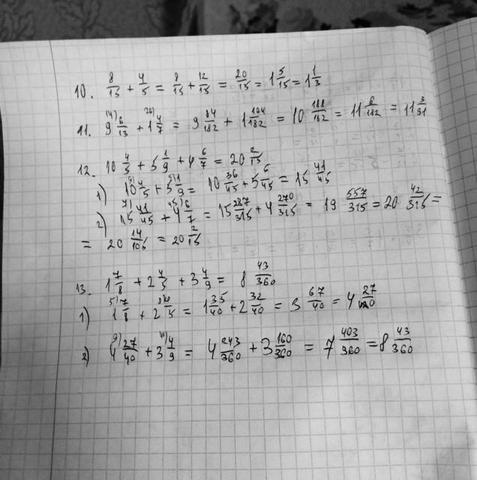 10. 8/15 + 4/5 = 8/15 + 12/15 = 20/15 = 1 5/15 = 1 1/3
11. 9 6/13 + 1 4/7 = 9 84/182 + 1 104/182 = 10 188/182 = 11 8/182 = 11 3/91
12. 10 4/5 + 5 1/9 + 4 6/7 = 20 2/15
1) 10 4/5 + 5 1/9 = 10 36/45 + 5 5/45 = 15 41/45
2) 15 41/45 + 4 6/7 = 15 287/315 + 4 270/315 = 19 557/315 = 20 42/315 =
= 20 14/105 = 20 2/15
13. 1 7/8 + 2 4/5 + 3 4/9 = 8 43/360
1) 1 7/8 + 2 4/5 = 1 35/40 + 2 32/40 = 3 67/40 = 4 27/40
2) 4 27/40 + 3 4/9 = 4 243/360 + 3 160/360 = 7 403/360 = 8 43/360